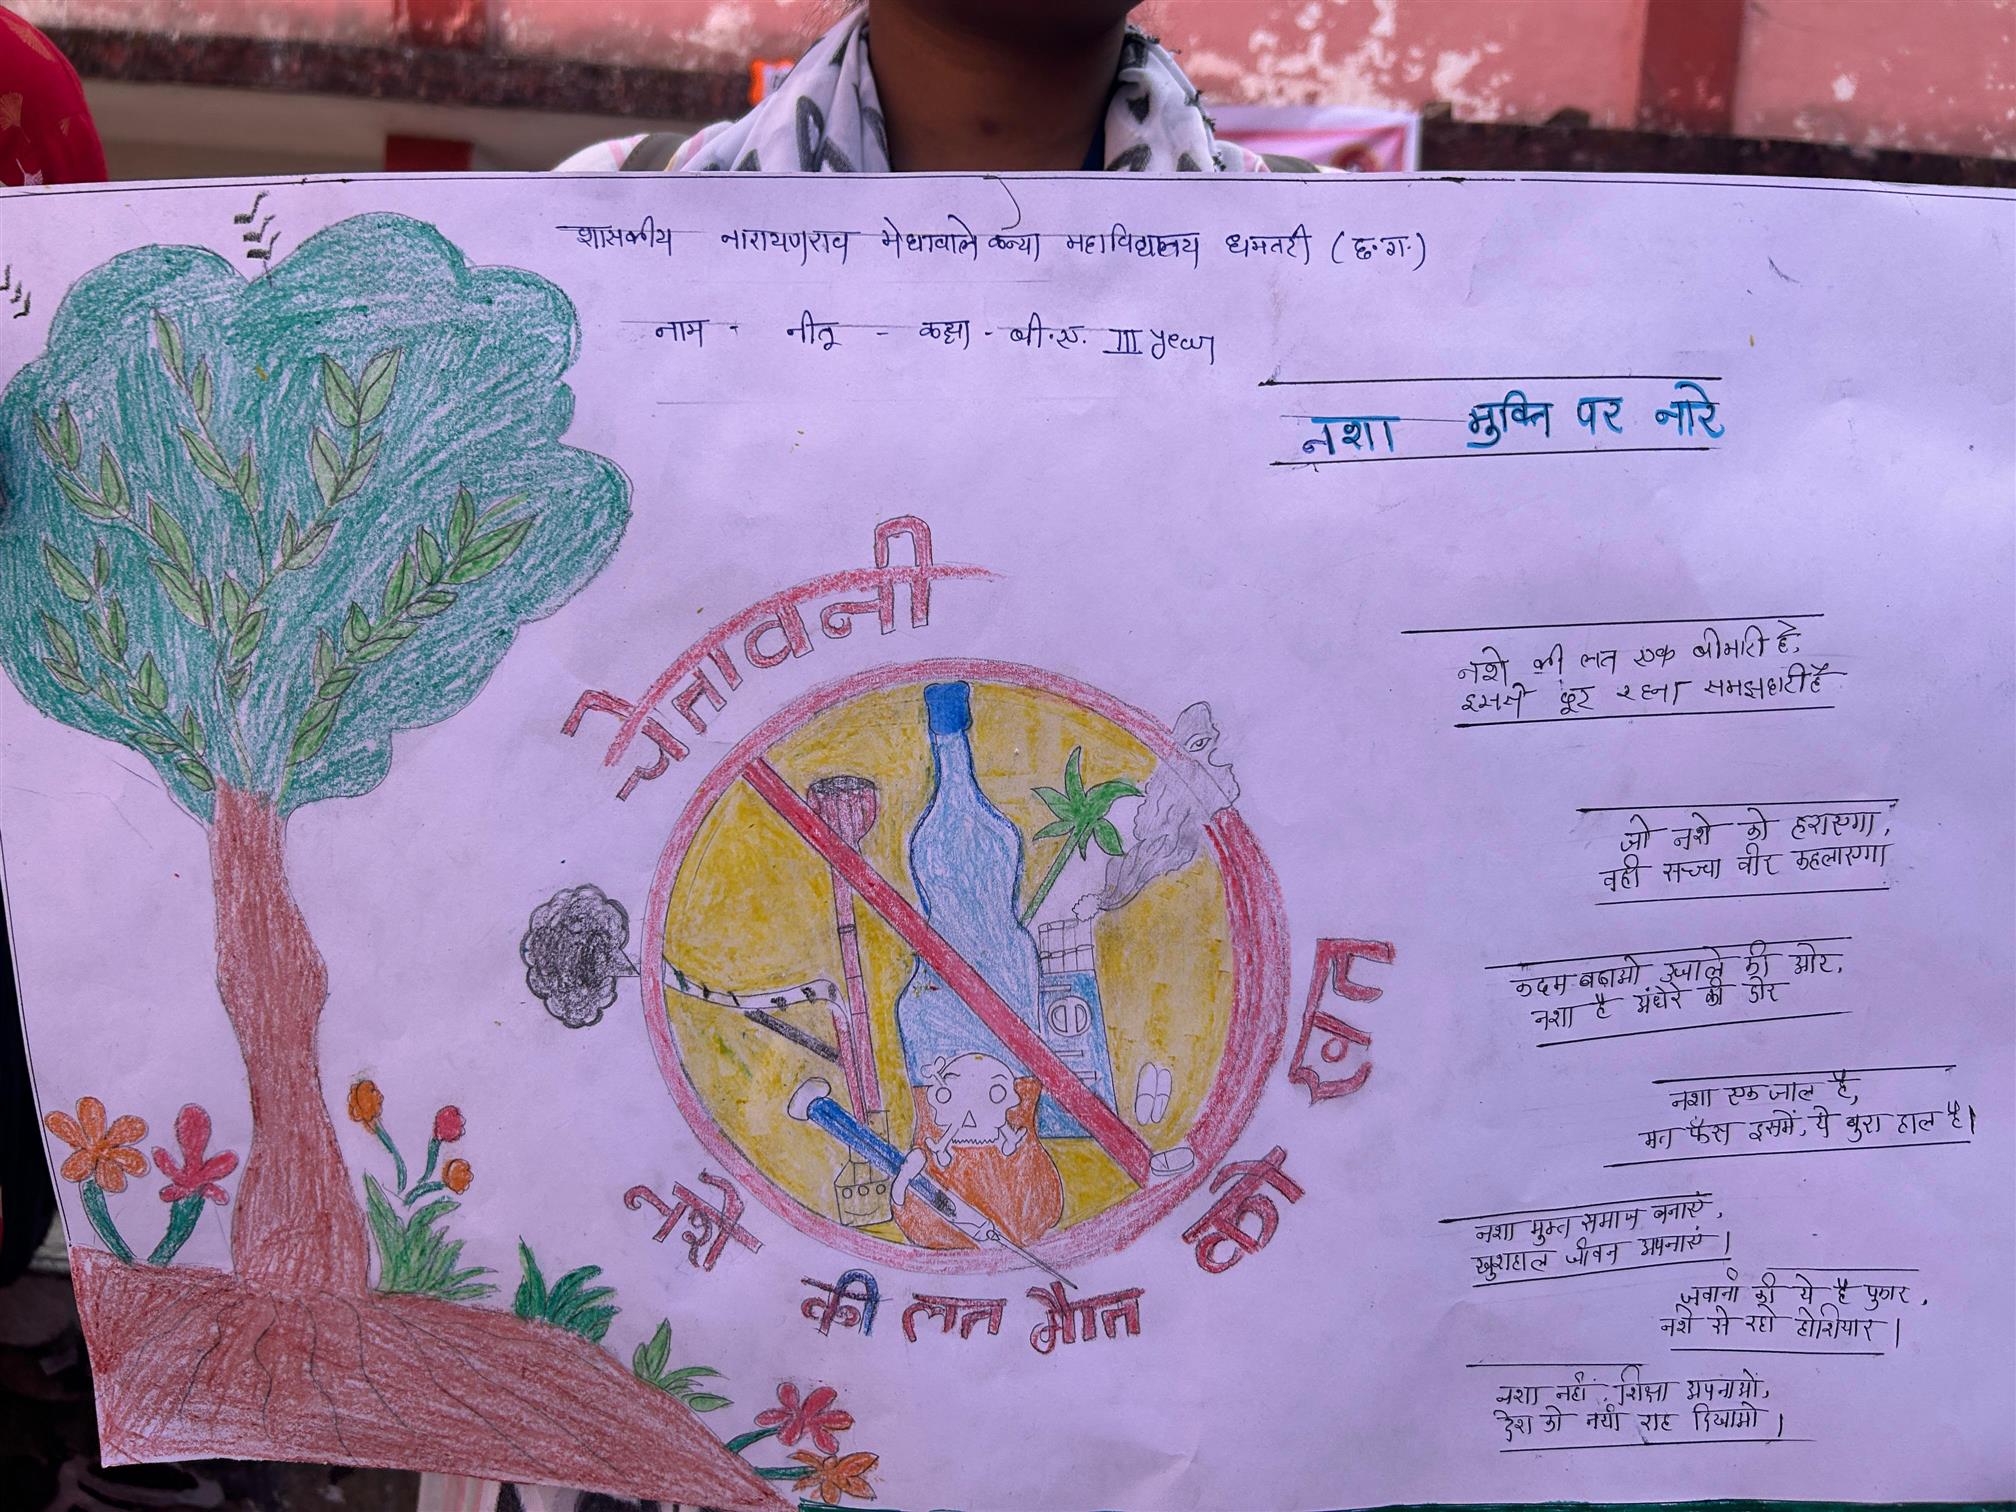 शासकीय नारायणराव मेघावाले कन्या महाविद्यालय धमतरी (छ.ग.)
नाम - नीतू - कक्षा - बी.ए. III year
नशा मुक्ति पर नारे
चेतावनी
नशे
की लत मौत
को
खत
नशे की लत एक बीमारी है,
इससे दूर रहना समझदारी है
जो नशे को हराएगा,
वही सच्चा वीर कहलाएगा
कदम बढ़ाओ उजाले की ओर,
नशा है अंधेरे की डोर
नशा एक जाल है,
मत फँस इसमें, ये बुरा हाल है।
नशा मुक्त समाज बनाएं,
खुशहाल जीवन अपनाएं।
जवानी की ये है पुकार,
नशे से रहो होशियार।
नशा नहीं शिक्षा अपनाओ,
देश को नयी राह दिखाओ।